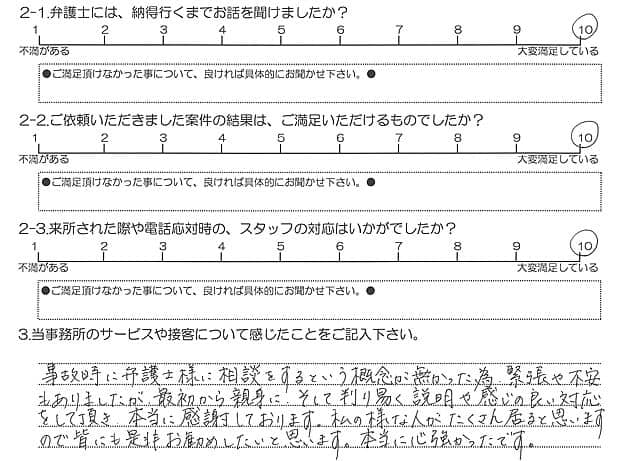 2-1.弁護士には、納得行くまでお話を聞けましたか？
1 2 3 4 5 6 7 8 9 10
不満がある 大変満足している
●ご満足頂けなかった事について、良ければ具体的にお聞かせ下さい。●
2-2.ご依頼いただきました案件の結果は、ご満足いただけるものでしたか？
1 2 3 4 5 6 7 8 9 10
不満がある 大変満足している
●ご満足頂けなかった事について、良ければ具体的にお聞かせ下さい。●
2-3.来所された際や電話応対時の、スタッフの対応はいかがでしたか？
1 2 3 4 5 6 7 8 9 10
不満がある 大変満足している
●ご満足頂けなかった事について、良ければ具体的にお聞かせ下さい。●
3.当事務所のサービスや接客について感じたことをご記入下さい。
事故時に弁護士様に相談をするという概念が無かった為、緊張や不安
もありましたが、最初から親身に、そして判り易く説明や感じの良い対応
をして頂き、本当に感謝しております。私の様な人がたくさん居ると思います
ので皆にも是非お勧めしたいと思います。本当に心強かったです。